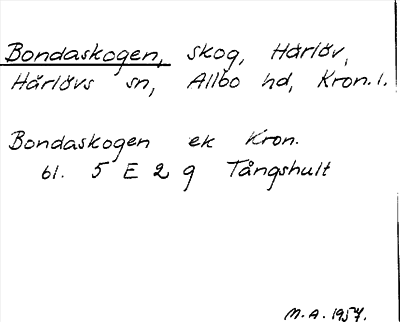 Bondaskogen, skog, Härlöv,
Härlövs sn, Allbo hd, Kron. l.
Bondaskogen ek Kron.
bl. 5 E 2 g Tångshult
M.A. 1957.